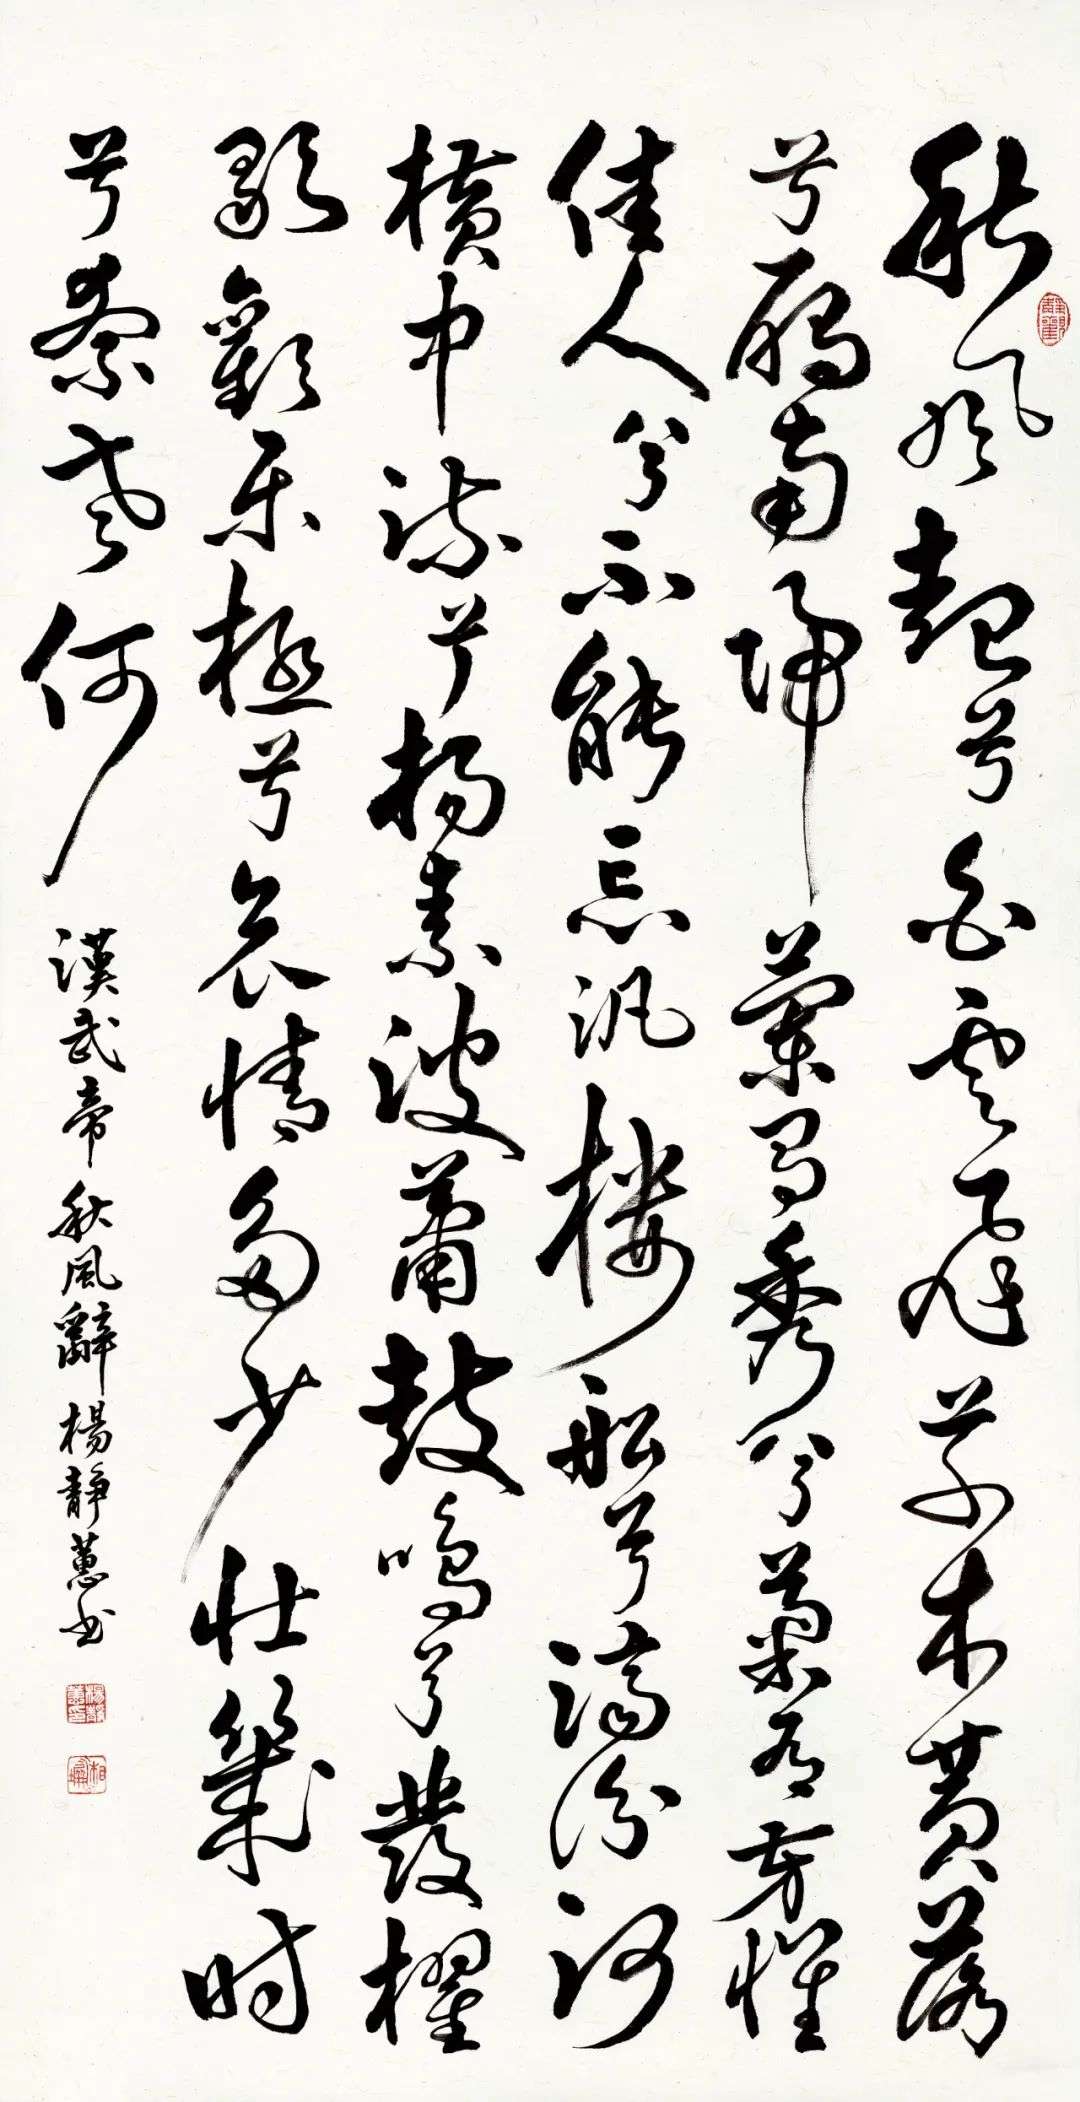 秋風起兮白雲飛草木黃落
兮鴈南歸蘭有秀兮菊有芳懷
佳人兮不能忘汎樓船兮濟汾河
橫中流兮揚素波簫鼓鳴兮發櫂
歌歡樂極兮哀情多少壯幾時
兮奈老何
漢武帝秋風辭楊靜蕙書